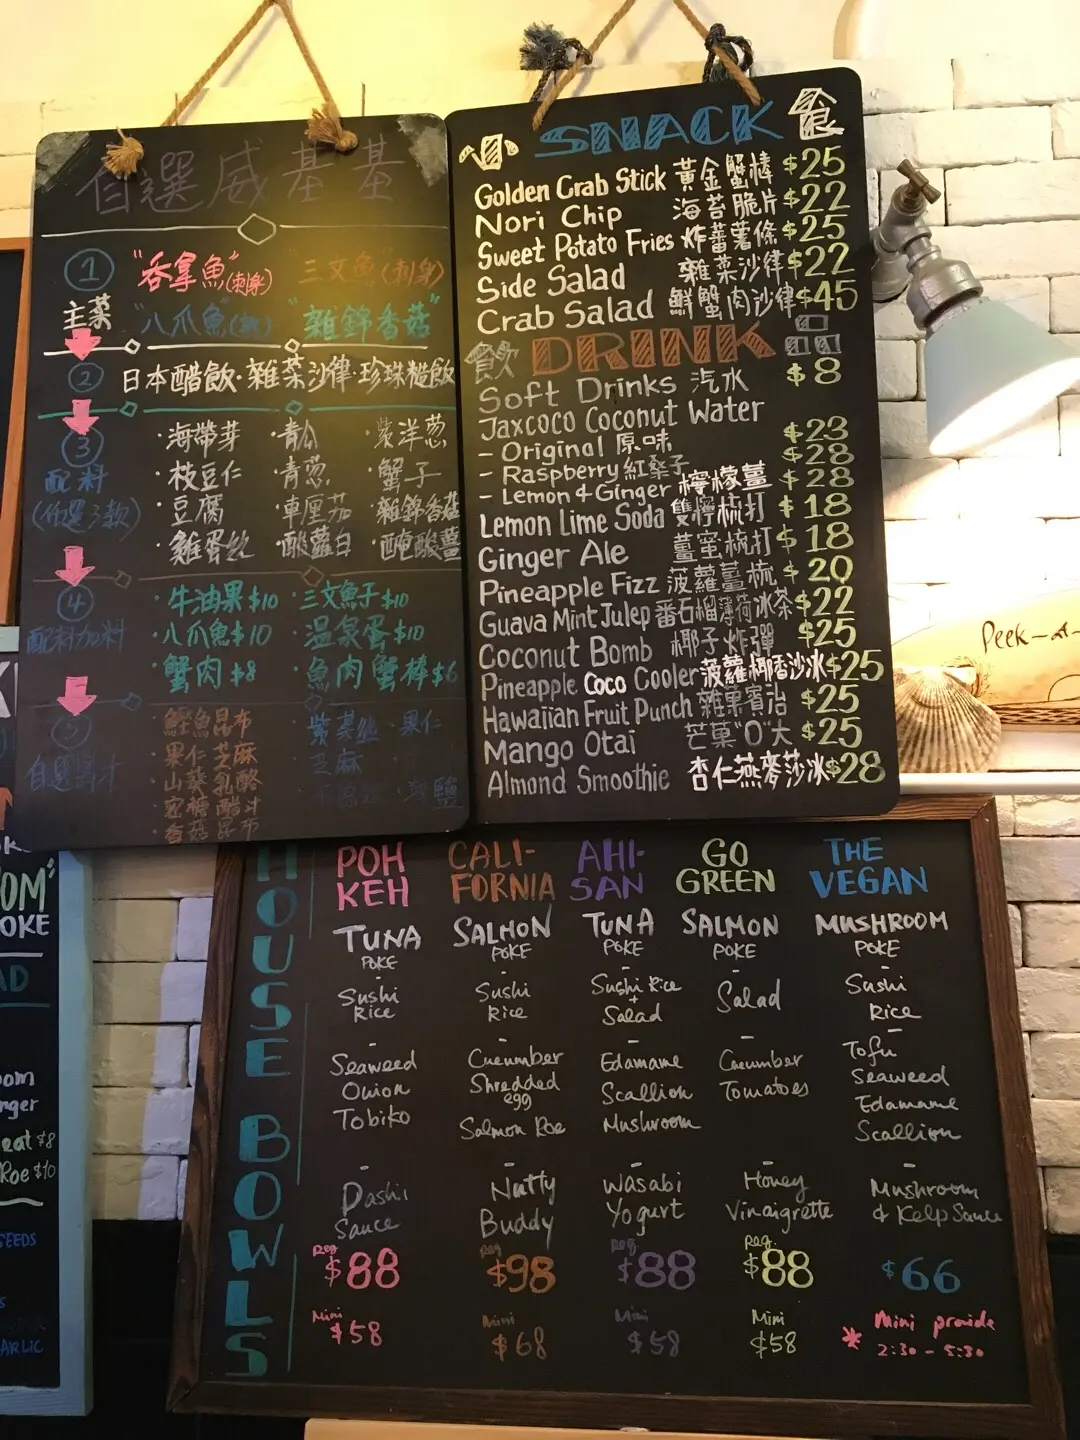 自選威基基
1 "吞拿魚"(刺身) 三文魚(刺身)
主菜 "八爪魚 "雜錦香菇"
2 日本醋飯·雜菜沙律·珍珠糙飯
3 ·海帶芽 ·青瓜 ·紫洋葱
配料 ·枝豆仁 ·青葱 ·蟹子
(任選3款) ·豆腐 ·車厘茄 ·雜錦香菇
·雞蛋絲 ·酸蘿白 ·醃酸薑
4 ·牛油果$10 ·三文魚子$10
配料加料 ·八爪魚$10 ·溫泉蛋$10
·蟹肉$8 ·魚肉蟹棒$6
5 ·鰹魚昆布 紫菜絲 ·果仁
自選醬汁 ·果仁芝麻 ·芝麻
·山葵乳酪 鹽
·蜜糖醋汁
·香菇昆布
小 SNACK 食
Golden Crab Stick 黃金蟹棒 $25
Nori Chip 海苔脆片 $22
Sweet Potato Fries 炸蕃薯條 $25
Side Salad 雜菜沙律 $22
Crab Salad 鮮蟹肉沙律 $45
餐飲 DRINK
Soft Drinks 汽水 $8
Jaxcoco Coconut Water
- Original 原味 $23
- Raspberry 紅桑子 $28
- Lemon & Ginger 檸檬薑 $28
Lemon Lime Soda 雙檸梳打 $18
Ginger Ale 薑蜜梳打 $18
Pineapple Fizz 菠蘿薑梳 $20
Guava Mint Julep 番石榴薄荷冰茶 $22
Coconut Bomb 椰子炸彈 $25
Pineapple Coco Cooler 菠蘿椰香沙冰 $25
Hawaiian Fruit Punch 雜菓賓治 $25
Mango Otai 芒菓"O"大 $25
Almond Smoothie 杏仁燕麥莎冰 $28
Peek-A-
OM"
OKE
AD
oom
nger
eat $8
Roe $10
SEEDS
ARLIC
HOUSE BOWLS
POH KEH
TUNA
POKE
-
Sushi
Rice
-
Seaweed
Onion
Tobiko
-
Dashi
Sauce
Reg. $88
Mini $58
CALI-
FORNIA
SALMON
POKE
-
Sushi
Rice
-
Cucumber
Shredded
egg
Salmon Roe
-
Nutty
Buddy
Reg $98
Mini $68
AHI-
SAN
TUNA
POKE
-
Sushi Rice
+
Salad
-
Edamame
Scallion
Mushroom
-
Wasabi
Yogurt
Reg $88
Mini $58
GO
GREEN
SALMON
POKE
-
Salad
-
Cucumber
Tomatoes
-
Honey
Vinaigrette
Reg. $88
Mini $58
THE
VEGAN
MUSHROOM
POKE
-
Sushi
Rice
-
Tofu
Seaweed
Edamame
Scallion
-
Mushroom
& Kelp Sauce
$66
* Mini provide
2:30 - 5:30